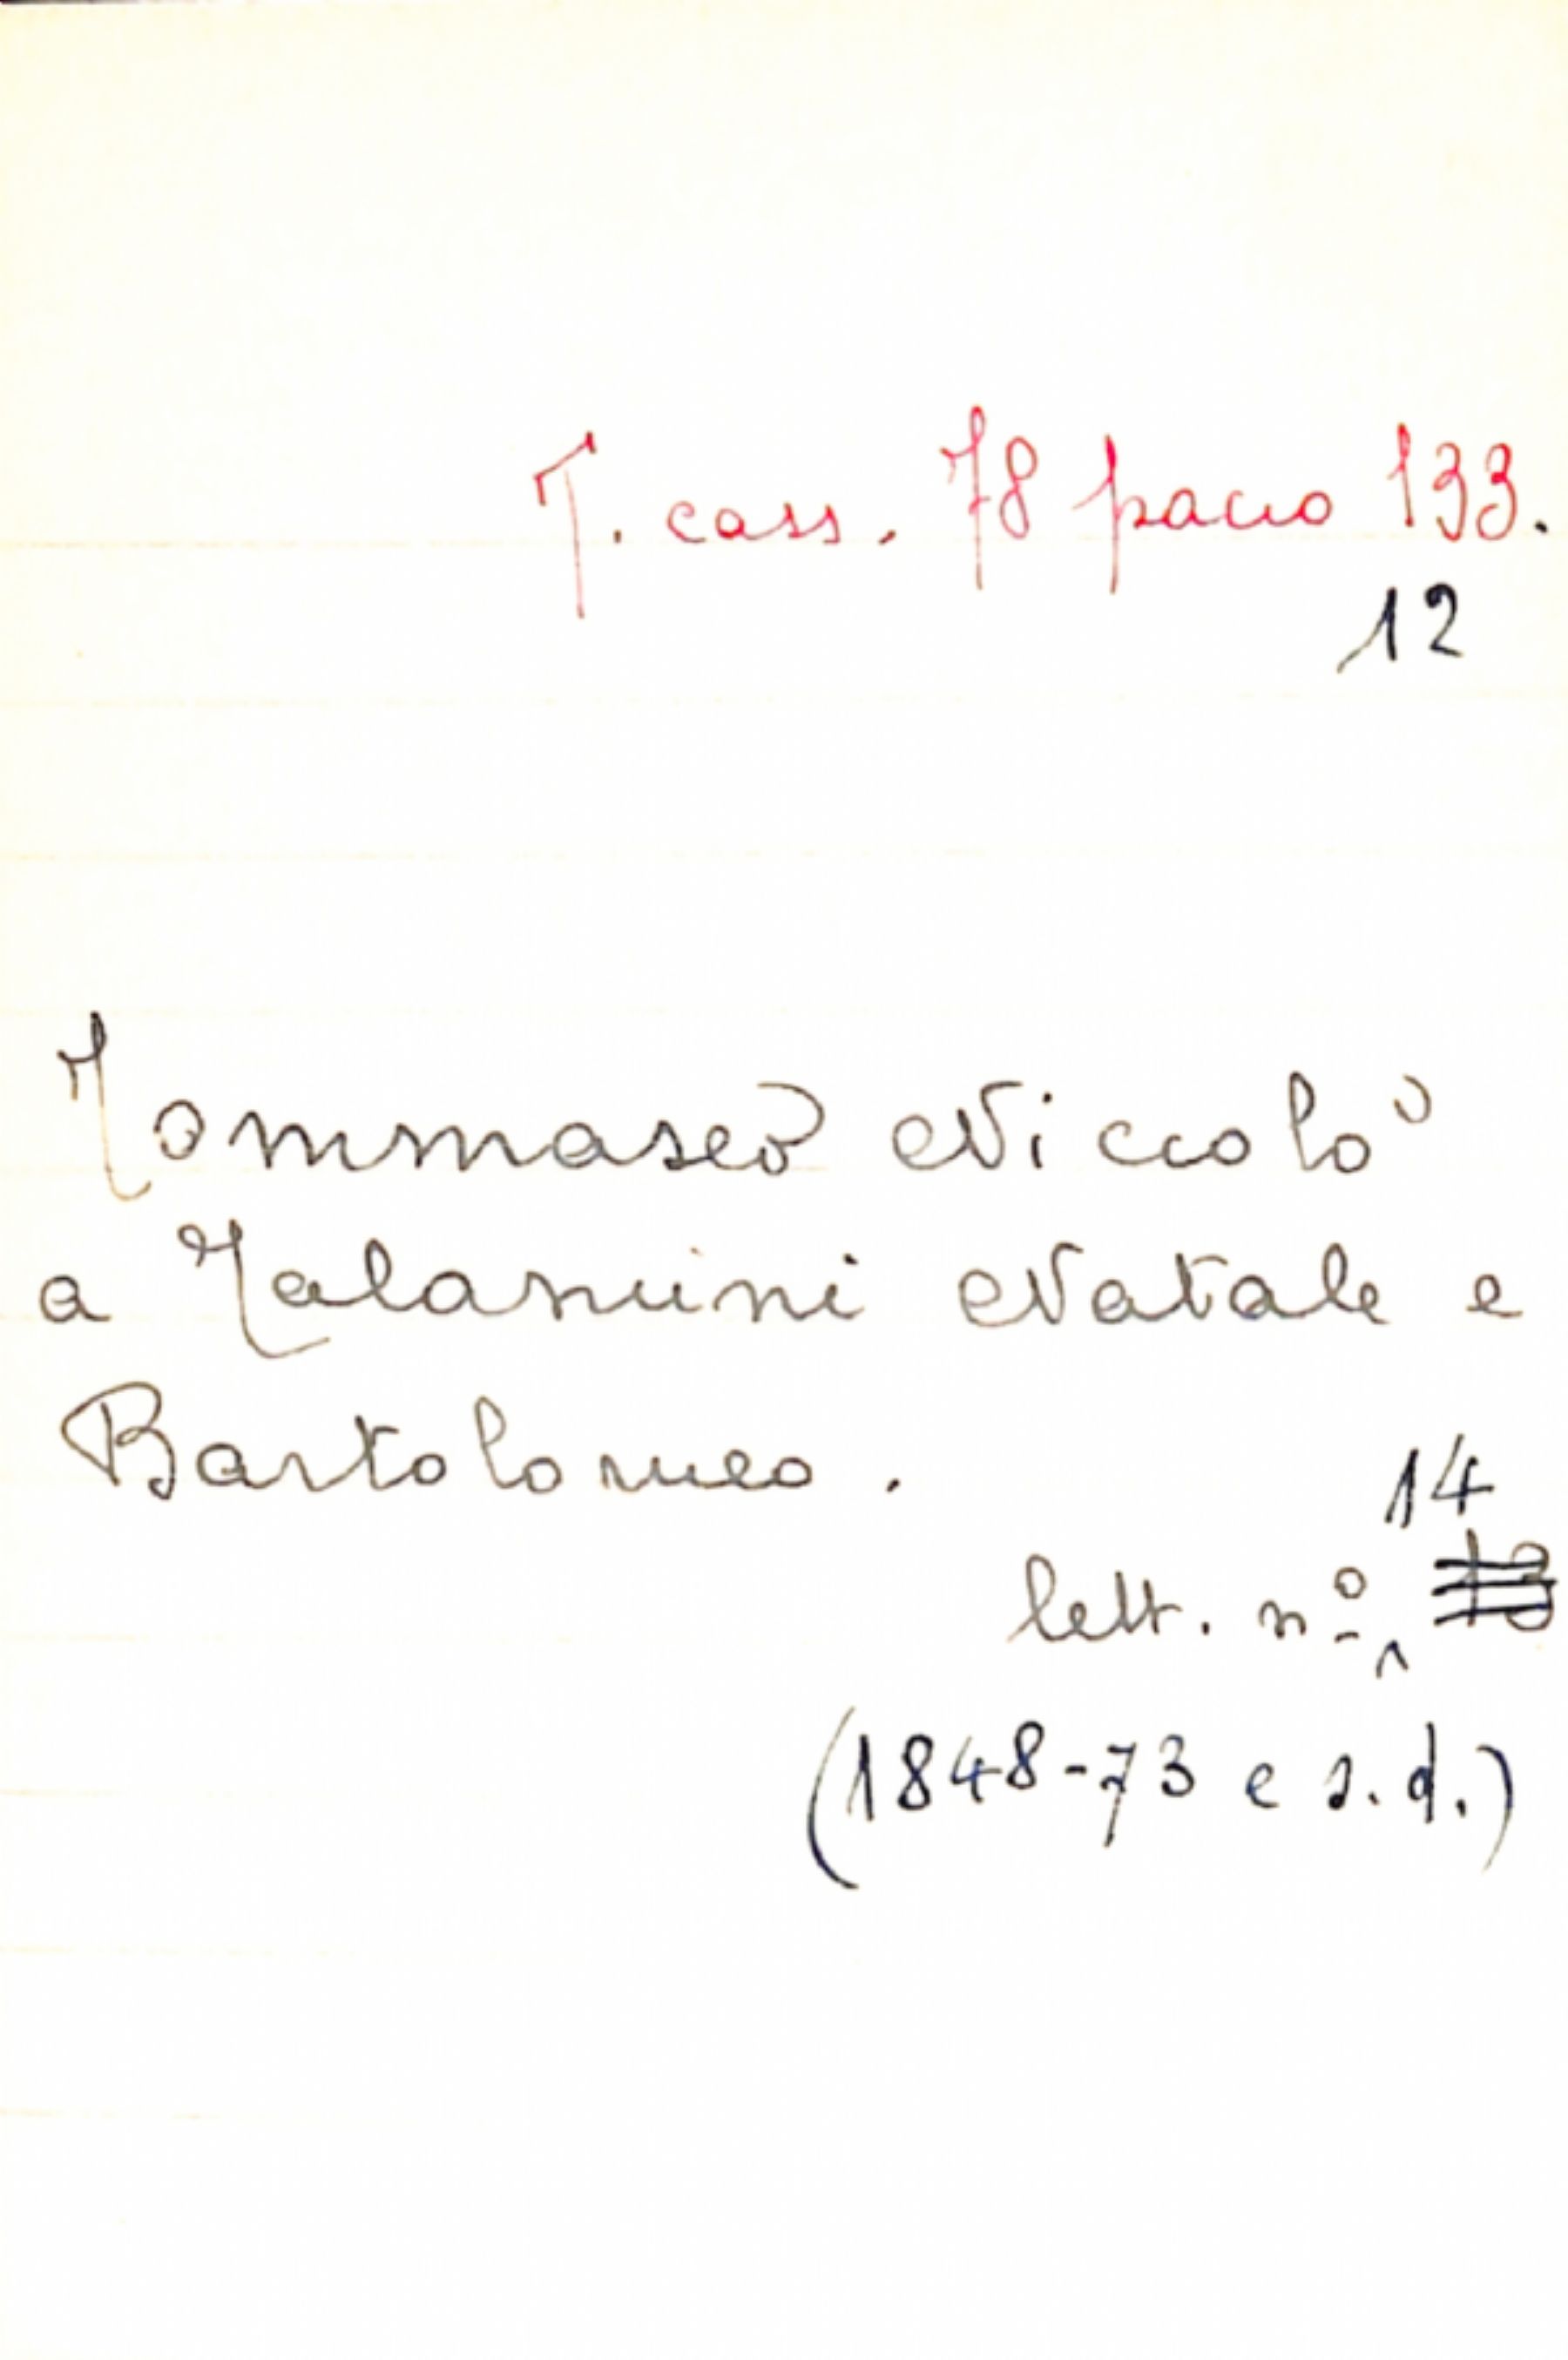 T. cass. 78 pacco 133.
12
Tommaseo Niccolò
a Talamini Natale e
Bartolomeo.
14
lett. n.º
(1848-73 e s.d.)